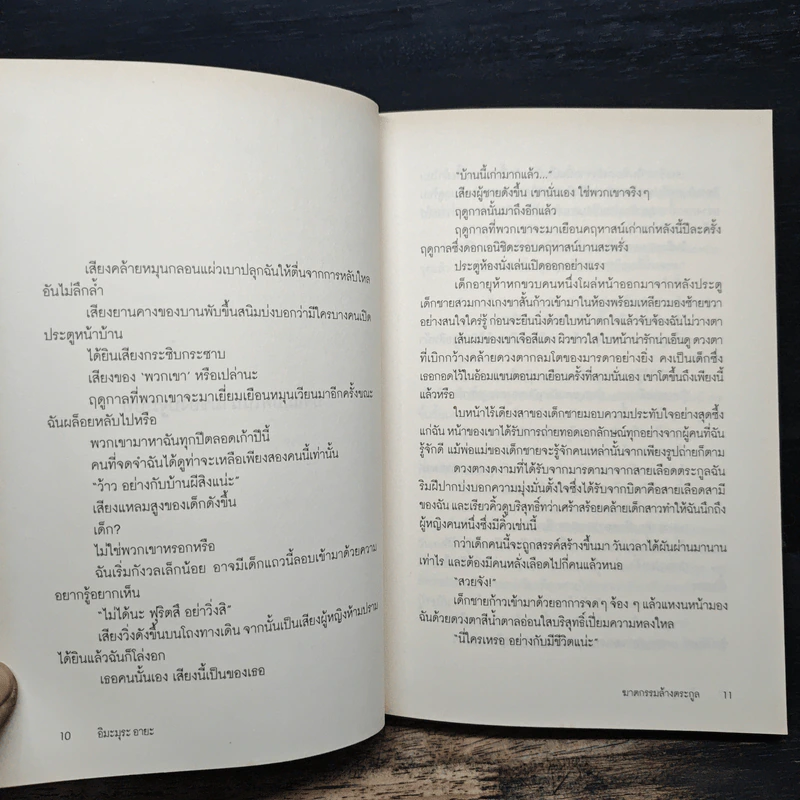 เสียงคล้ายหมุนกลอนแผ่วเบาปลุกฉันให้ตื่นจากการหลับใหล
อันไม่ลึกล้ำ
เสียงยานคางของบานพับขึ้นสนิมบ่งบอกว่ามีใครบางคนเปิด
ประตูหน้าบ้าน
ได้ยินเสียงกระซิบกระซาบ
เสียงของ ‘พวกเขา’ หรือเปล่านะ
ฤดูกาลที่พวกเขาจะมาเยี่ยมเยือนหมุนเวียนมาอีกครั้งขณะ
ฉันผล็อยหลับไปหรือ
พวกเขามาหาฉันทุกปีตลอดเก้าปีนี้
คนที่จดจำฉันได้ดูท่าจะเหลือเพียงสองคนนี้เท่านั้น
“ว้าว อย่างกับบ้านผีสิงแน่ะ”
เสียงแหลมสูงของเด็กดังขึ้น
เด็ก?
ไม่ใช่พวกเขาหรอกหรือ
ฉันเริ่มกังวลเล็กน้อย อาจมีเด็กแถวนี้ลอบเข้ามาด้วยความ
อยากรู้อยากเห็น
“ไม่ได้นะ ฟุริตสึ อย่าวิ่งสิ”
เสียงวิ่งดังขึ้นบนโถงทางเดิน จากนั้นเป็นเสียงผู้หญิงห้ามปราม
ได้ยินแล้วฉันก็โล่งอก
เธอคนนั้นเอง เสียงนี้เป็นของเธอ
10 อิมะมุระ อายะ
“บ้านนี้เก่ามากแล้ว...”
เสียงผู้ชายดังขึ้น เขานั่นเอง ใช่พวกเขาจริงๆ
ฤดูกาลนั้นมาถึงอีกแล้ว
ฤดูกาลที่พวกเขาจะมาเยือนคฤหาสน์เก่าแก่หลังนี้ปีละครั้ง
ฤดูกาลซึ่งดอกเอนิชิดะรอบคฤหาสน์บานสะพรั่ง
ประตูห้องนั่งเล่นเปิดออกอย่างแรง
เด็กอายุห้าหกขวบคนหนึ่งโผล่หน้าออกมาจากหลังประตู
เด็กชายสวมกางเกงขาสั้นก้าวเข้ามาในห้องพร้อมเหลียวมองซ้ายขวา
อย่างสนใจใคร่รู้ ก่อนจะยืนนิ่งด้วยใบหน้าตกใจแล้วจับจ้องฉันไม่วางตา
เส้นผมของเขาเจือสีแดง ผิวขาวใส ใบหน้าน่ารักน่าเอ็นดู ดวงตา
ที่เบิกกว้างคล้ายดวงตากลมโตของมารดาอย่างยิ่ง คงเป็นเด็กซึ่ง
เธอกอดไว้ในอ้อมแขนตอนมาเยือนครั้งที่สามนั่นเอง เขาโตขึ้นถึงเพียงนี้
แล้วหรือ
ใบหน้าไร้เดียงสาของเด็กชายมอบความประทับใจอย่างสุดซึ้ง
แก่ฉัน หน้าของเขาได้รับการถ่ายทอดเอกลักษณ์ทุกอย่างจากผู้คนที่ฉัน
รู้จักดี แม้พ่อแม่ของเด็กชายจะรู้จักคนเหล่านั้นจากเพียงรูปถ่ายก็ตาม
ดวงตางดงามที่ได้รับจากมารดามาจากสายเลือดตระกูลฉัน
ริมฝีปากบ่งบอกความมุ่งมั่นตั้งใจซึ่งได้รับจากบิดาคือสายเลือดสามี
ของฉัน และเรียวคิ้วดูบริสุทธิ์ทว่าเศร้าสร้อยคล้ายเด็กสาวทำให้ฉันนึกถึง
ผู้หญิงคนหนึ่งซึ่งมีคิ้วเช่นนี้
กว่าเด็กคนนี้จะถูกสรรค์สร้างขึ้นมา วันเวลาได้ผันผ่านมานาน
เท่าไร และต้องมีคนหลั่งเลือดไปกี่คนแล้วหนอ
“สวยจัง!”
เด็กชายก้าวเข้ามาด้วยอาการจดๆ จ้องๆ แล้วแหงนหน้ามอง
ฉันด้วยดวงตาสีน้ำตาลอ่อนใสบริสุทธิ์เปี่ยมความหลงใหล
“นี่ใครเหรอ อย่างกับมีชีวิตแน่ะ”
ฆาตกรรมล้างตระกูล 11